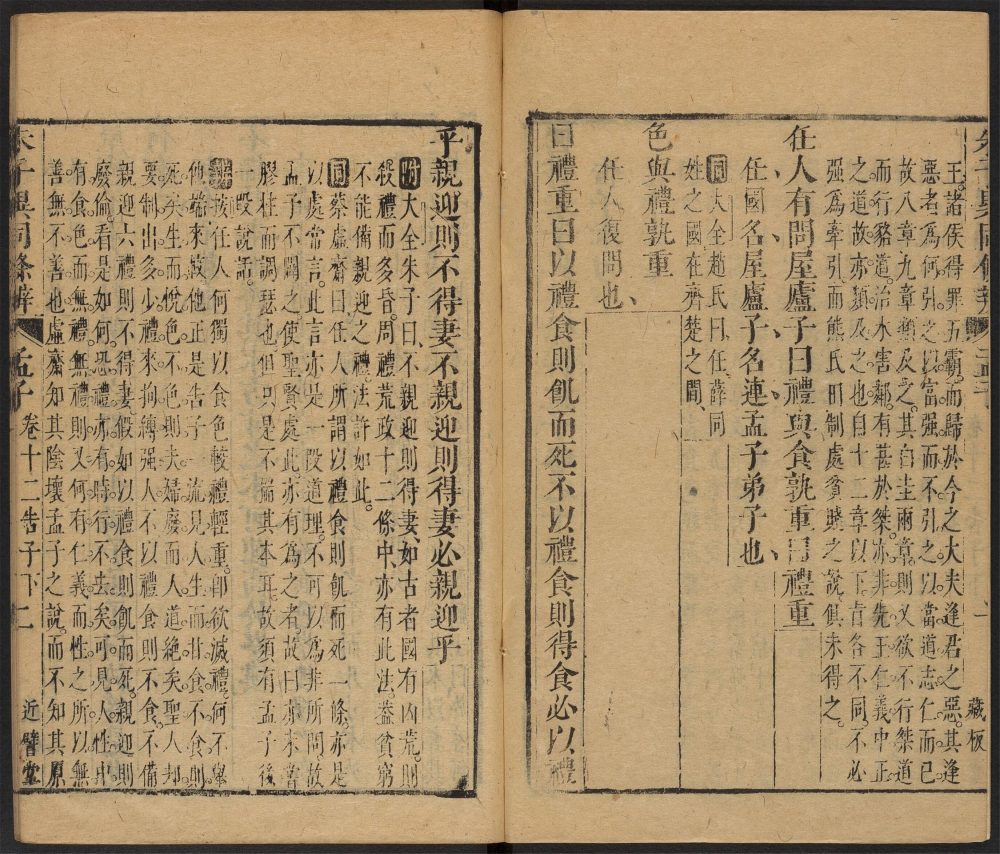 朱子異同條辨
孟子
一
藏板
王諸侯得罪五霸而歸於今之大夫逢君之惡其逢
惡者為何引之以富强而不引之以當道志仁而已
故八章九章類及之其白圭兩章則又欲不行桀道
而行貉道治水害鄰有甚於桀亦非先王仁義中正
之道故亦類及之也自十二章以下旨各不同不必
强為牽引而熊氏田制處貧賤之說俱未得之
任人有問屋廬子曰禮與食孰重曰禮重
任國名屋廬子名連孟子弟子也
同大全趙氏曰任薛同
姓之國在齊楚之間
色與禮孰重
任人復問也
曰禮重曰以禮食則飢而死不以禮食則得食必以禮
乎親迎則不得妻不親迎則得妻必親迎乎
附大全朱子曰不親迎則得妻如古者國有凶荒則
殺禮而多昏周禮荒政十二條中亦有此法葢貧窮
不能備親迎之禮法許如此
同蔡虛齋曰任人所謂以禮食則飢而死一條亦是
以處常言此言亦是一段道理不可以為非所問故
孟子不闢之使聖賢處此亦有為之者故曰亦未嘗
膠柱而調瑟也但只是不揣其本耳故須有孟子後
一段說話
辨按任人何獨以食色較禮輕重卽欲滅禮何不舉
他端來較他正是告子一流見人生而甘食不食則
死矣生而悅色不色則夫婦廢而人道絕矣聖人却
要制出多少禮來拘縛强人不以禮食則不食不備
親迎六禮則不得妻假如以禮食則飢而死親迎則
廢倫看是如何恐禮亦有時行不去矣可見人性中
有食色而無禮無禮則又何有仁義而性之所以無
善無不善也虛齋知其陰壞孟子之說而不知其原
朱子異同條辨
孟子
卷十二告子下
二
近譬堂